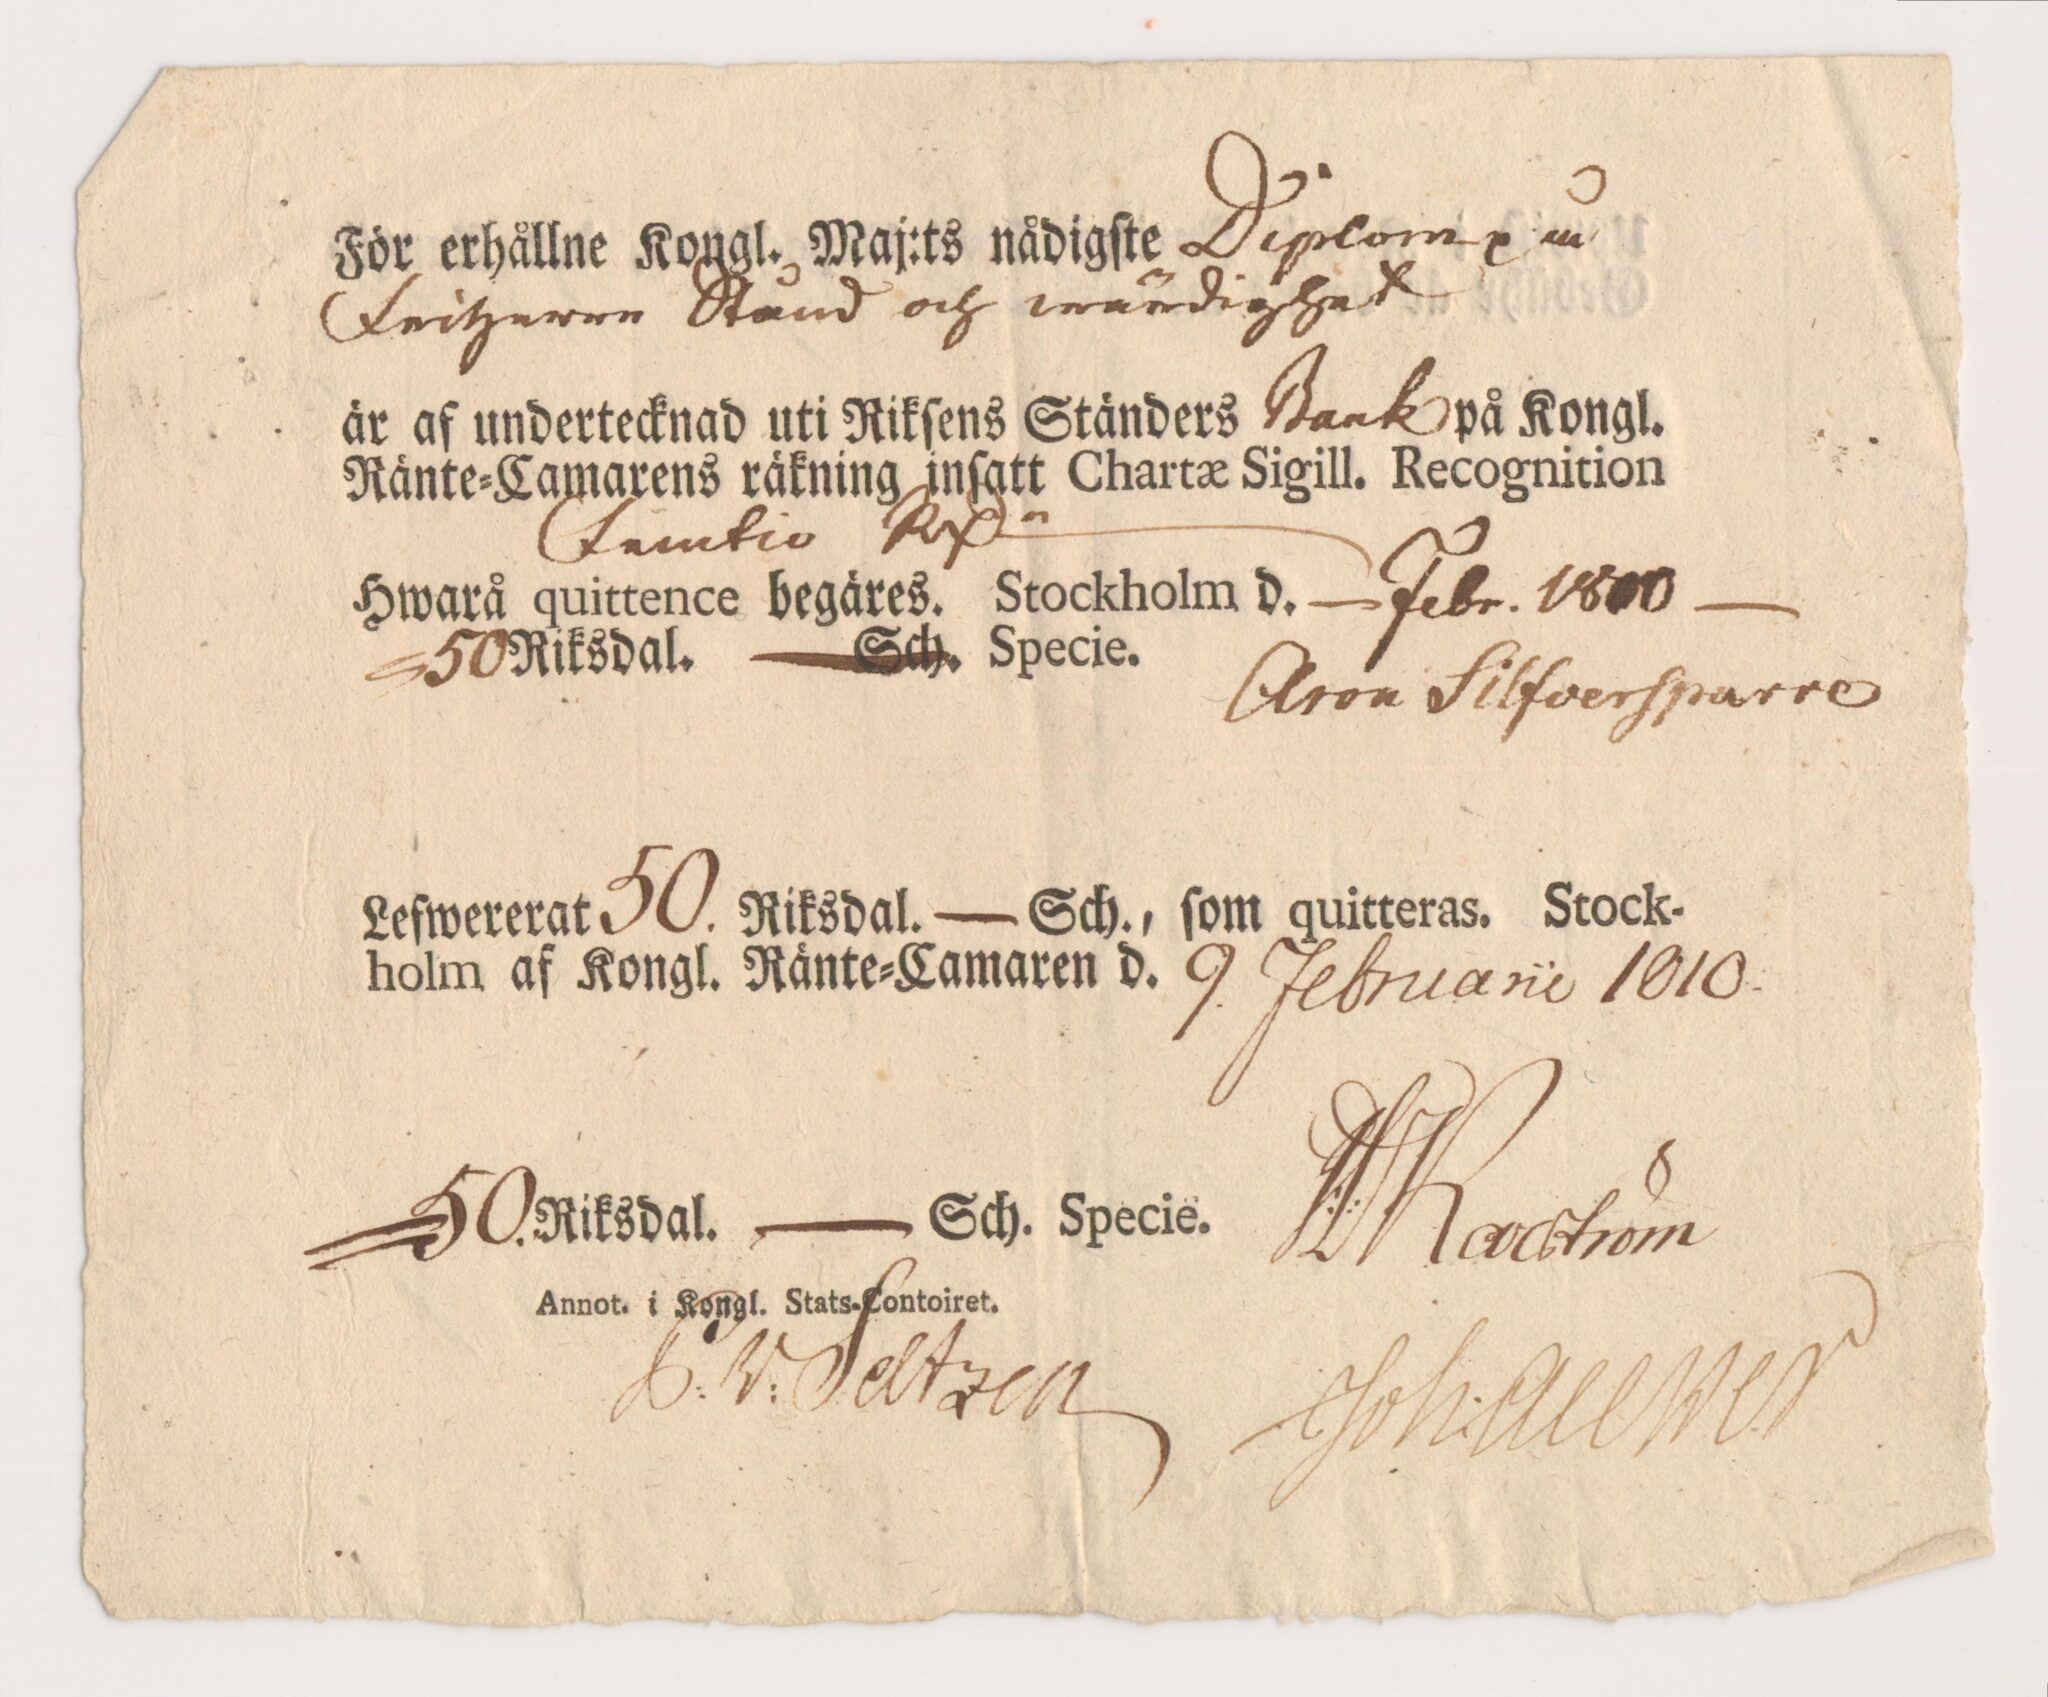 För erhållne Kongl. Maj:ts nådigste Diplom på
Friherre Stånd och wärdighet
är af undertecknad uti Riksens Ständers Bank på Kongl.
Ränte-Camarens räkning insatt Chartæ Sigill. Recognition
Femtio Rd
Hwarå quittence begäres. Stockholm d. — Febr. 1810 —
50 Riksdal. — Sch. Specie.
Aron Silfversparre
Lefwererat 50. Riksdal. — Sch., som quitteras. Stock-
holm af Kongl. Ränte-Camaren d. 9. Februarii 1810.
50. Riksdal. — Sch. Specie.
Annot. i Kongl. Stats-Contoiret.
V: Seltzen